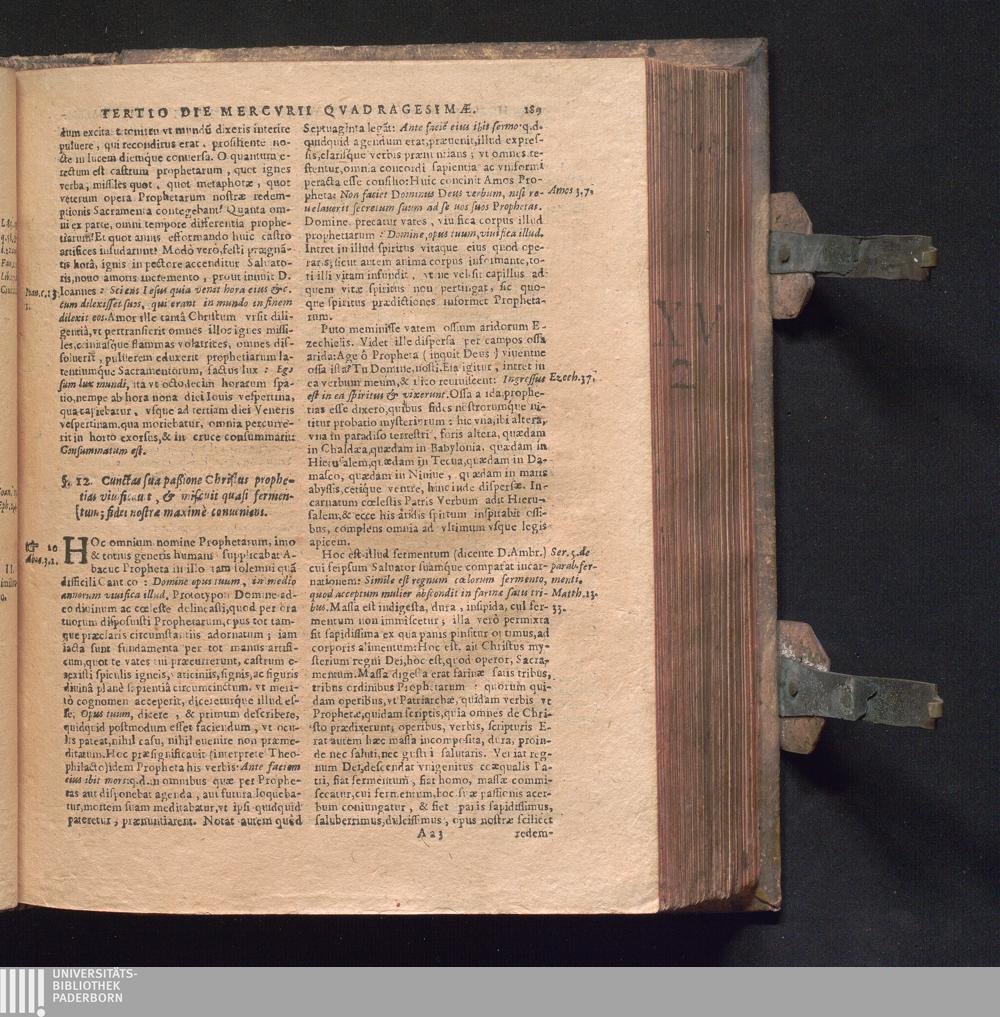 TERTIO DIE MERCVRII QVADRAGESIMÆ. 189
dum excita tonitru vt mundū dixeris interire
puluere, qui reconditus erat, prosiliente no-
cte in lucem diemque conuersa. O quantum e-
rectum est castrum prophetarum, quot ignes
verba, missiles quot, quot metaphoræ, quot
veterum opera Prophetarum nostræ redem-
ptionis Sacramenta contegebant! Quanta om-
ni ex parte, omni tempore differentia prophe-
tiarum! Et quot annis efformando huic castro
artifices insudarunt? Modò verò, festi prægnā-
tis horâ, ignis in pectore accenditur Saluato-
ris, nouo amoris incremento, prout innuit D.
Ioannes: Sciens Iesus quia venit hora eius &c.
cùm dilexisset suos, qui erant in mundo in finem
dilexit eos. Amor ille tantâ Christum vrsit dili-
gentiâ, vt pertransierit omnes illos ignes missi-
les, cunctasque flammas volatrices, omnes dis-
soluerit, puluerem eduxerit prophetiarum la-
tentiumque Sacramentorum, factus lux: Ego
sum lux mundi, ita vt octodecim horarum spa-
tio, nempe ab hora nona diei Iouis vespertina,
qua capiebatur, vsque ad tertiam diei Veneris
vespertinam, qua moriebatur, omnia percurre-
rit in horto exorsus, & in cruce consummarit:
Consummatum est.
§. 12. Cunctas sua passione Christus prophe-
tias viuificauit, & miscuit quasi fermen-
tum; fidei nostræ maximè conueniens.
HOc omnium nomine Prophetarum, imo
& totius generis humani supplicabat A-
bacuc Propheta in illo tam solemni quā
difficili Cantico: Domine opus tuum, in medio
annorum viuifica illud. Prototypon Domine ad-
eo diuinum ac cœleste delineasti, quod per ora
tuorum disposuisti Prophetarum, opus tot tam-
que præclaris circumstantiis adornatum; iam
iacta sunt fundamenta per tot manus artifi-
cum, quot te vates tui præcurrerunt, castrum e-
rexisti spiculis igneis, vaticiniis, signis, ac figuris
diuinâ planè sapientiâ circumcinctum, vt meri-
tò cognomen acceperit, dicereturque illud es-
se, Opus tuum, dicere, & primum describere,
quidquid postmodum esset faciendum, vt ocu-
lis pateat, nihil casu, nihil euenire non præme-
ditatum. Hoc præsignificauit (interprete Theo-
philacto) idem Propheta his verbis: Ante faciem
eius ibit mors: q.d. in omnibus quæ per Prophe-
tas aut disponebat agenda, aut futura loqueba-
tur, mortem suam meditabatur, vt ipsi quidquid
pateretur, prænuntiarent. Notat autem quòd
Ioan. 1, 13.
1.
10
Abac. 3, 2.
Septuaginta legāt: Ante faciē eius ibit sermo: q.d.
quidquid agendum erat, præuenit, illud expres-
sis, clarisque verbis prænuntians; vt omnes te-
stentur, omnia concordi sapientia ac vniformi
peracta esse consilio: Huic concinit Amos Pro-
pheta: Non faciet Dominus Deus verbum, nisi re-
uelauerit secretum suum ad seruos suos Prophetas.
Domine, precatur vates, viuifica corpus illud
prophetiarum: Domine, opus tuum, viuifica illud.
Intret in illud spiritus vitaque eius quod ope-
raris, sicut autem anima corpus informante, to-
ti illi vitam infundit, vt ne vel sit capillus ad
quem vitæ spiritus non pertingat, sic quo-
que spiritus prædictiones informet Propheta-
rum.
Puto meminisse vatem ossium aridorum E-
zechielis. Videt ille dispersa per campos ossa
arida: Age ô Propheta (inquit Deus) viuentne
ossa ista? Tu Domine, nosti. Eia igitur, intret in
ea verbum meum, & illico reuiuiscent: Ingressus
est in ea spiritus & vixerunt. Ossa arida prophe-
tias esse dixero, quibus fides nostrorumque ni-
titur probatio mysteriorum: hic vna, ibi altera,
vna in paradiso terrestri, foris altera, quædam
in Chaldæa, quædam in Babylonia, quædam in
Hierusalem, quædam in Tecua, quædam in Da-
masco, quædam in Niniue, quædam in maris
abyssis, cetique ventre, hinc inde dispersæ. In-
carnatum cœlestis Patris Verbum adit Hieru-
salem, & ecce his aridis spiritum inspirabit ossi-
bus, complens omnia ad vltimum vsque legis
apicem.
Hoc est illud fermentum (dicente D. Ambr.)
cui seipsum Saluator suamque comparat incar-
nationem: Simile est regnum cœlorum fermento,
quod acceptum mulier abscondit in farinæ satis tri-
bus. Massa est indigesta, dura, insipida, cui fer-
mentum non immiscetur; illa verò permixta
fit sapidissima ex qua panis pinsitur optimus, ad
corporis alimentum: Hoc est, ait Christus my-
sterium regni Dei, hoc est, quod operor, Sacra-
mentum. Massa digesta erat farinæ satis tribus,
tribus ordinibus Prophetarum: quorum qui-
dam operibus, vt Patriarchæ, quidam verbis vt
Prophetæ, quidam scriptis, quia omnes de Chri-
sto prædixerunt, operibus, verbis, scripturis E-
rat autem hæc massa incomposita, dura, proin-
de nec saluti, nec gustui salutaris. Veniat reg-
num Dei, descendat vnigenitus coæqualis Pa-
tri, fiat fermentum, fiat homo, massæ commi-
sceatur, cui fermentum, hoc suæ passionis acer-
bum coniungatur, & fiet panis sapidissimus,
saluberrimus, dulcissimus, opus nostræ scilicet
Amos 3, 7.
Ezech. 37.
Ser. 5. de
parab. fer-
menti.
Matth. 13.
33.
Aa 3 redem-
XV
2
UNIVERSITÄTS-
BIBLIOTHEK
PADERBORN